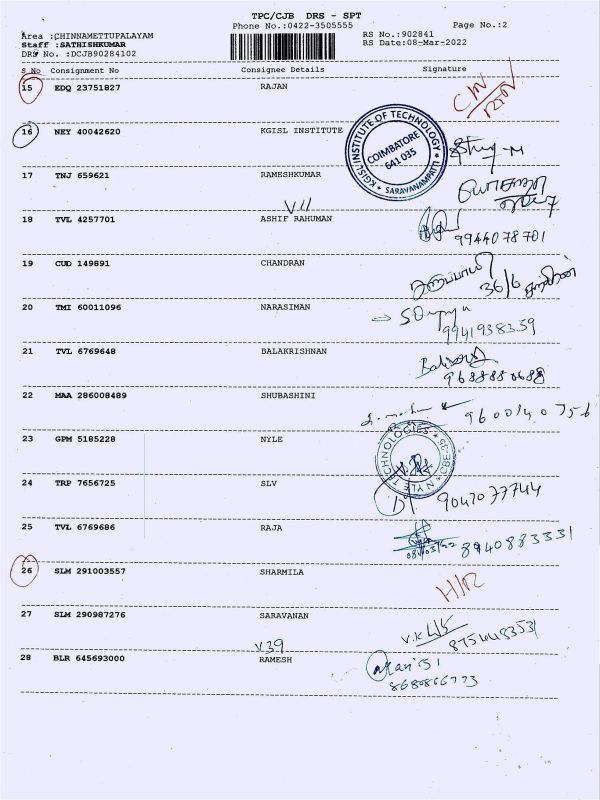 TPC/CJB DRS - SPT
Phone No.:0422-3505555
Page No.:2
Area :CHINNAMETTUPALAYAM
RS No.:902841
Staff :SATHISHKUMAR
RS Date:08-Mar-2022
DRS No. :DCJB90284102
S No Consignment No Consignee Details Signature
15 EDQ 23751827 RAJAN
16 NEY 40042620 KGISL INSTITUTE
KGISL INSTITUTE OF TECHNOLOGY
COIMBATORE
641 035
SARAVANAMPATTI
17 TNJ 659621 RAMESHKUMAR
18 TVL 4257701 ASHIF RAHUMAN
9944078701
19 CUD 149891 CHANDRAN
36/6
20 TMI 60011096 NARASIMAN
9941938359
21 TVL 6769648 BALAKRISHNAN
22 MAA 286008489 SHUBASHINI
9600140756
23 GPM 5185228 NYLE
NYLE TECHNOLOGIES CBE-35
24 TRP 7656725 SLV
9047077744
25 TVL 6769686 RAJA
08/03/22 8940883331
26 SLM 291003557 SHARMILA
27 SLM 290987276 SARAVANAN
V39
28 BLR 645693000 RAMESH
8680866773